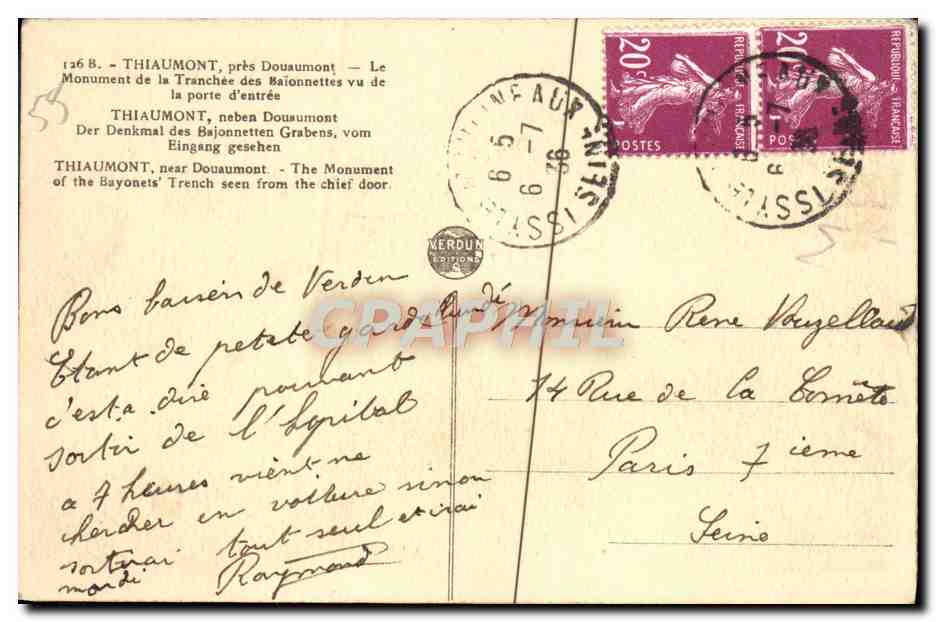 126 B. - THIAUMONT, près Douaumont — Le
Monument de la Tranchée des Baïonnettes vu de
la porte d'entrée
THIAUMONT, neben Douaumont
Der Denkmal des Bajonnetten Grabens, vom
Eingang gesehen
THIAUMONT, near Douaumont. - The Monument
of the Bayonets' Trench seen from the chief door.
55
20c
POSTES
REPUBLIQUE FRANÇAISE
20c
POSTES
REPUBLIQUE FRANÇAISE
6 5
6 - 7
36
VERDUN
EDITIONS
CPAPHIL
Bons baisers de Verdun
Etant de petite garde lundi
c'est a dire pouvant
sortir de l'hopital
a 7 heures vient ne
chercher en voiture sinon
sortirai tout seul et irai
mardi
Raymond
Monsieur Rene Vouzellaud
14 Rue de La Comète
Paris 7 ieme
Seine